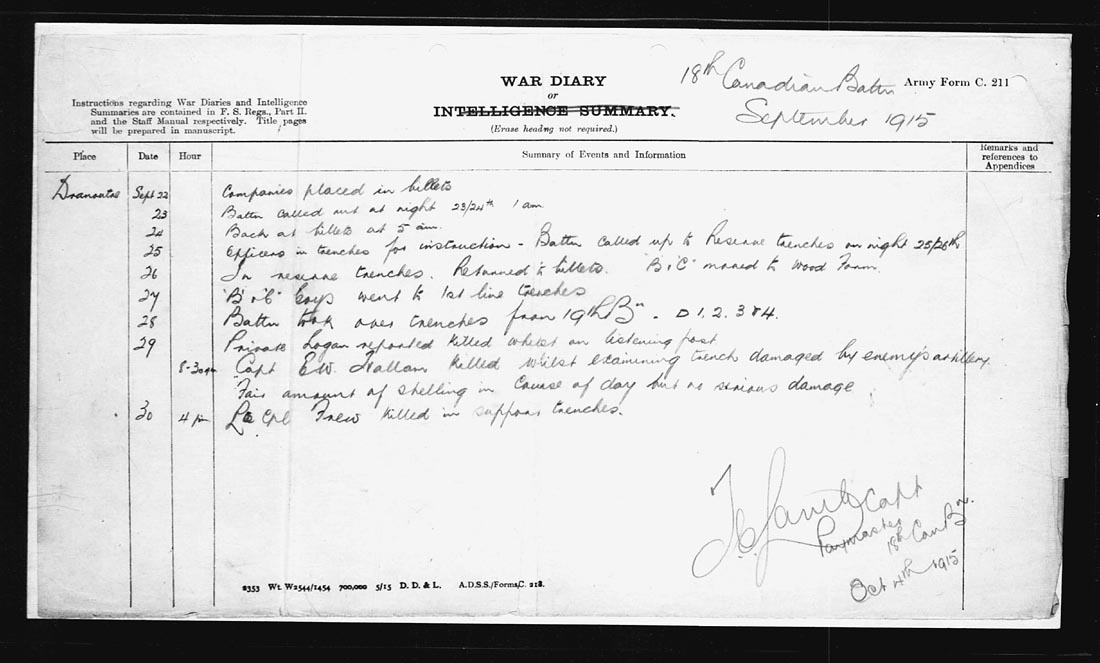 WAR DIARY
or
INTELLIGENCE SUMMARY.
(Erase heading not required.)
18th Canadian Battn
September 1915
Army Form C. 211
Instructions regarding War Diaries and Intelligence
Summaries are contained in F. S. Regs., Part II.
and the Staff Manual respectively. Title pages
will be prepared in manuscript.
Place Date Hour Summary of Events and Information Remarks and references to Appendices
Dranoutre Sept 22 Companies placed in billets
23 Battn called out at night 23/24th 1 am
24 Back at billets at 5 am.
25 Officers in trenches for instruction - Battn called up to Reserve trenches on night 25/26th
26 In reserve trenches. Returned to billets. "B & C" moved to Wood Farm.
27 "B & C" Coys went to 1st line trenches
28 Battn took over trenches from 19th Bn - D 1. 2. 3 & 4.
29 Private Logan reported killed whilst on listening post
8-30 am Capt E.W. Hallam killed whilst examining trench damaged by enemy's artillery.
Fair amount of shelling in course of day but no serious damage
30 4 pm Lce Cpl Frew killed in support trenches.
Capt
Paymaster
18th Can Bn.
Oct 4th 1915
2353 Wt. W2544/1454 700,000 5/15 D. D. & L. A.D.S.S./Forms/C. 218.